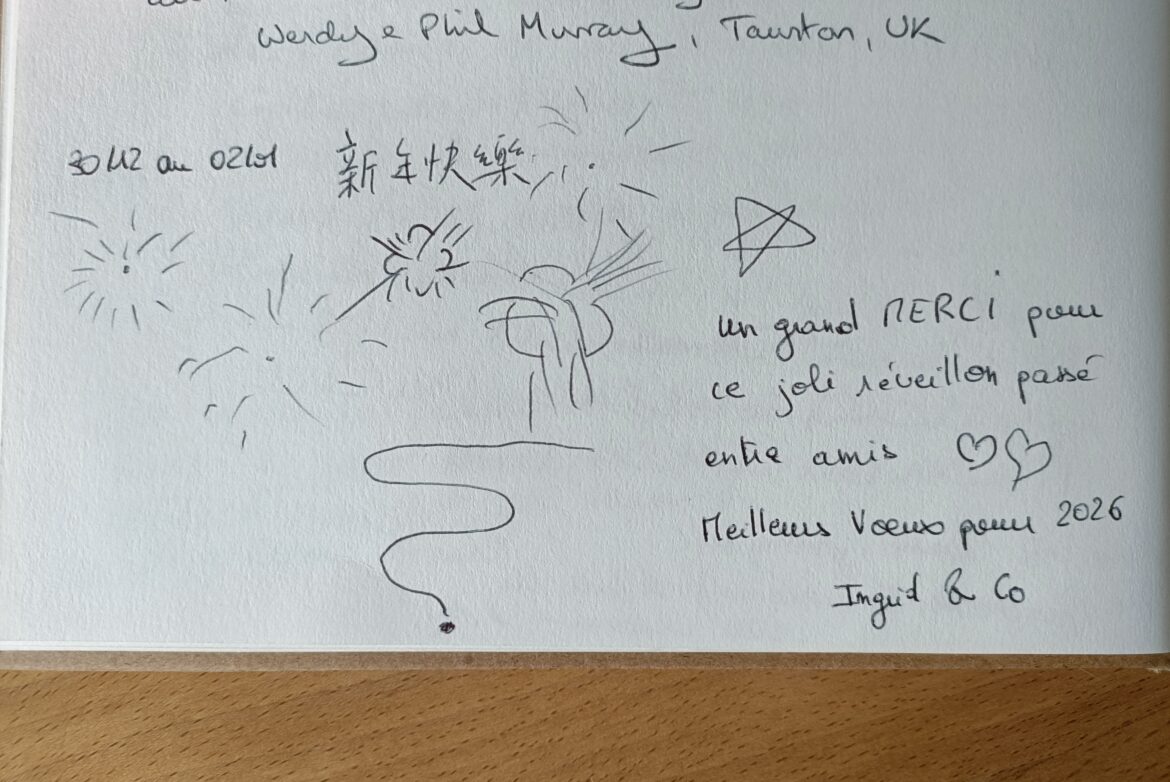 Wendy & Phil Murray, Taunton, UK
30/12 au 02/01 新年快樂
un grand MERCI pour
ce joli réveillon passé
entre amis
Meilleurs Vœux pour 2026
Ingrid & Co